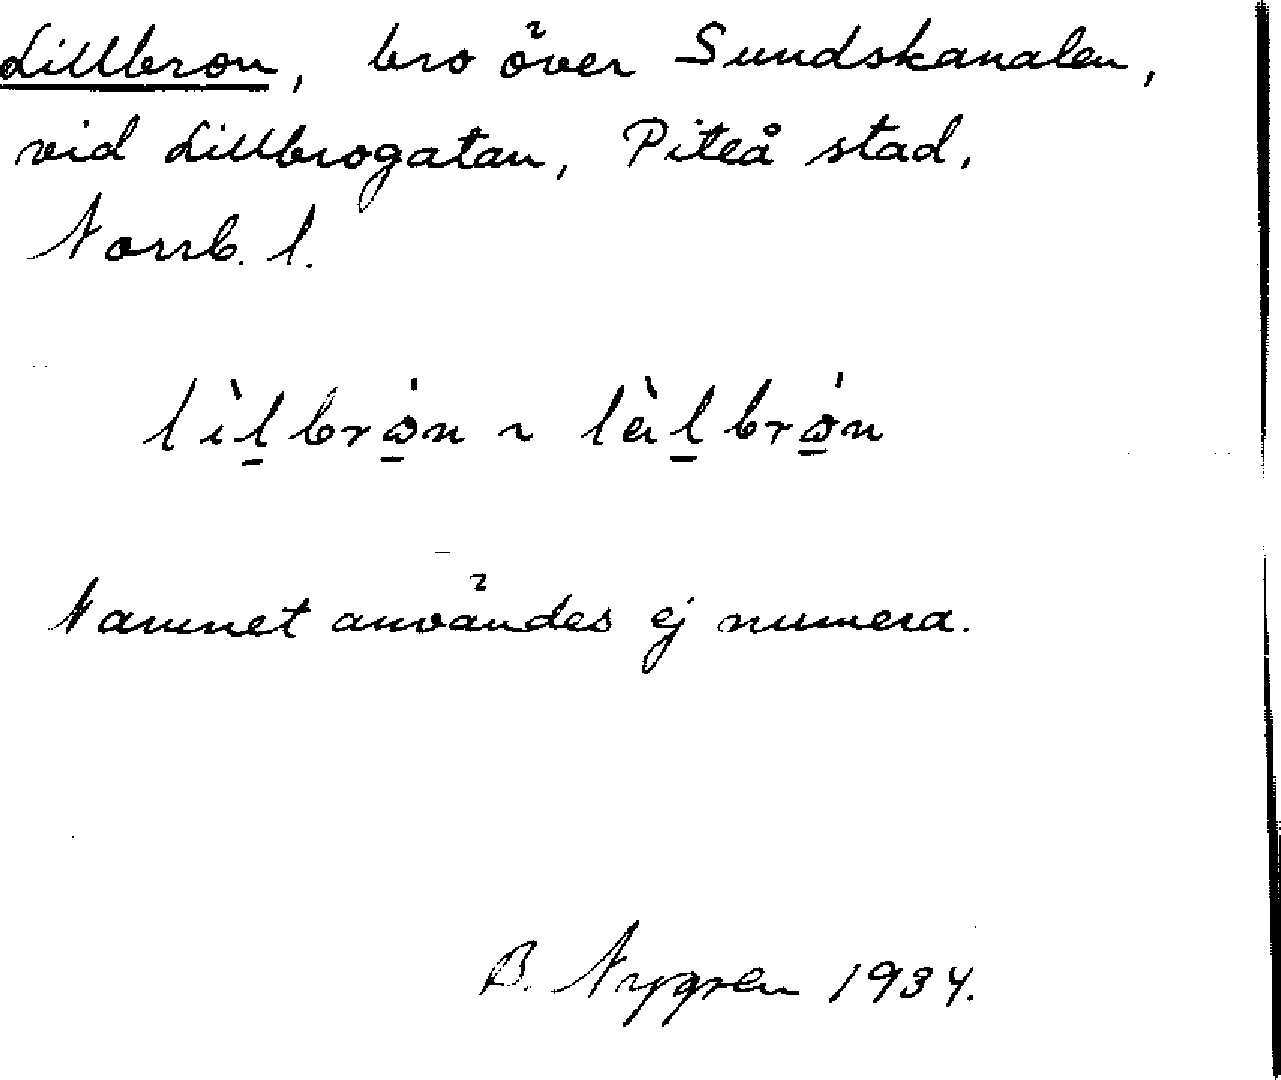 Lillbron, bro över Sundskanalen,
vid Lillbrogatan, Piteå stad,
Norrb. l.
lìl̠brώ̠n ~ lèl̠brώ̠n
Namnet användes ej numera.
B. Nygren 1934.